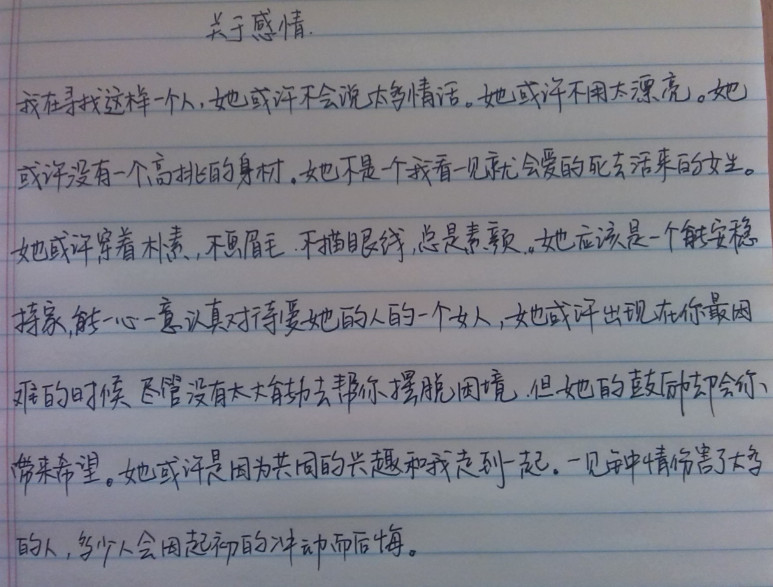 关于感情.
我在寻找这样一个人,她或许不会说太多情话。她或许不用太漂亮。她
或许没有一个高挑的身材。她不是一个我看一见就会爱的死去活来的女生。
她或许穿着朴素,不画眉毛.不描眼线,总是素颜。她应该是一个能安稳
持家,能一心一意认真对待爱她的人的一个女人,她或许出现在你最困
难的时候 尽管没有太大能力去帮你摆脱困境.但她的鼓励却会你
带来希望。她或许是因为共同的兴趣和我走到一起。一见钟情伤害了太多
的人,多少人会因起初的冲动而后悔。